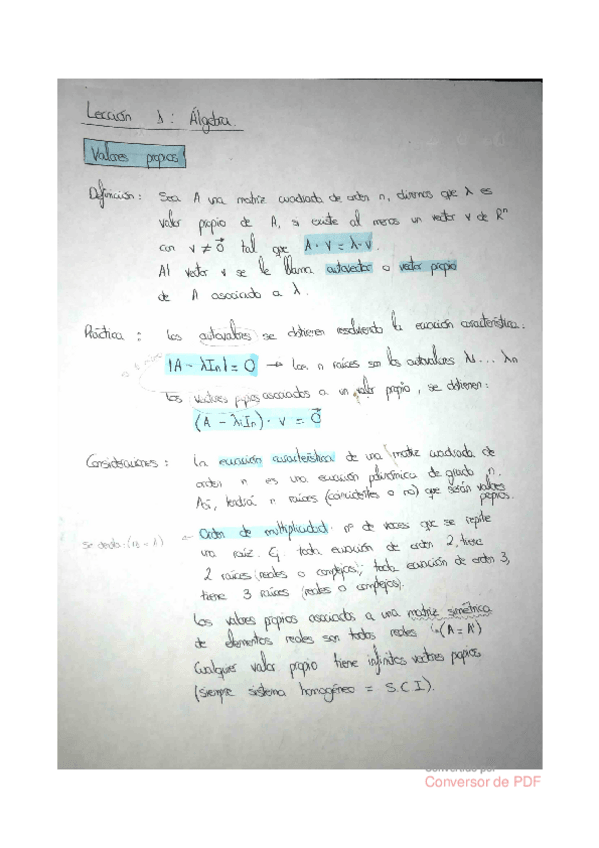 Lección 1: Álgebra.
Valores propios
Definición: Sea A una matriz cuadrada de orden n, diremos que λ es
valor propio de A, si existe al menos un vector v de Rⁿ
con v ≠ 0⃗ tal que A · v = λ · v.
Al vector v se le llama autovector o vector propio
de A asociado a λ.
Práctica: Los autovalores se obtienen resolviendo la ecuación característica:
|A - λIn| = 0 → Las n raíces son los autovalores λ1 ... λn
Los vectores propios asociados a un valor propio, se obtienen:
(A - λiIn) · v = 0⃗
Consideraciones: La ecuación característica de una matriz cuadrada de
orden n es una ecuación polinómica de grado n.
Así, tendrá n raíces (coincidentes o no) que serán valores
propios.
Orden de multiplicidad: nº de veces que se repite
una raíz. Ej. toda ecuación de orden 2, tiene
2 raíces (reales o complejas); toda ecuación de orden 3,
tiene 3 raíces (reales o complejas).
Los valores propios asociados a una matriz simétrica
de elementos reales son todos reales (A = A')
Cualquier valor propio tiene infinitos vectores propios
(siempre sistema homogéneo = S.C.I).
Convertido por
Conversor de PDF